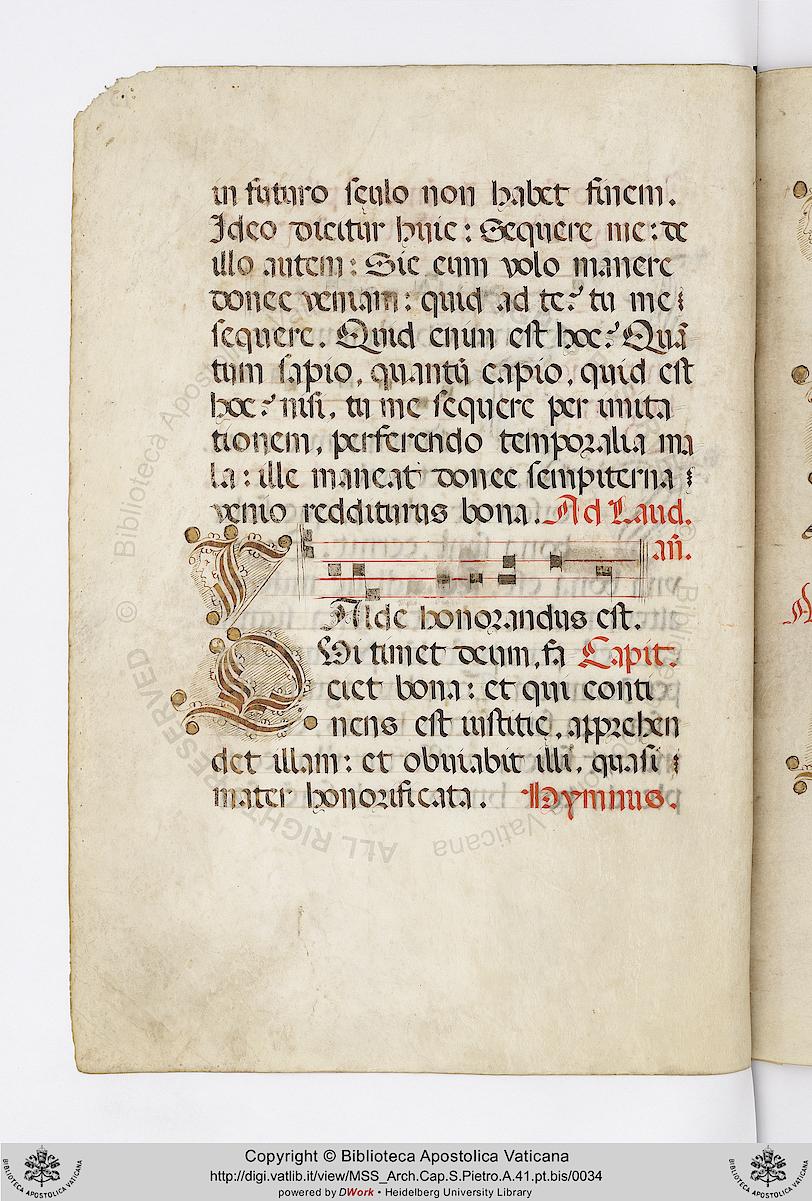 in futuro seculo non habet finem.
Ideo dicitur huic: Sequere me: de
illo autem: Sic eum volo manere
donec veniam: quid ad te? tu me
sequere. Quid enim est hoc? Quā
tum sapio, quantū capio, quid est
hoc? nisi, tu me sequere per imita
tionem, perferendo temporalia ma
la: ille maneat donec sempiterna
venio redditurus bona. Ad Laud.
añ.
VAlde honorandus est.
QUi timet deum, fa Capit.
ciet bona: et qui conti
nens est iustitie, apprehen
det illam: et obviabit illi, quasi
mater honorificata. Hymnus.
© Biblioteca Apostolica Vaticana
ALL RIGHTS RESERVED
Copyright © Biblioteca Apostolica Vaticana
http://digi.vatlib.it/view/MSS_Arch.Cap.S.Pietro.A.41.pt.bis/0034
powered by DWork • Heidelberg University Library
BIBLIOTECA APOSTOLICA VATICANA
BIBLIOTECA APOSTOLICA VATICANA